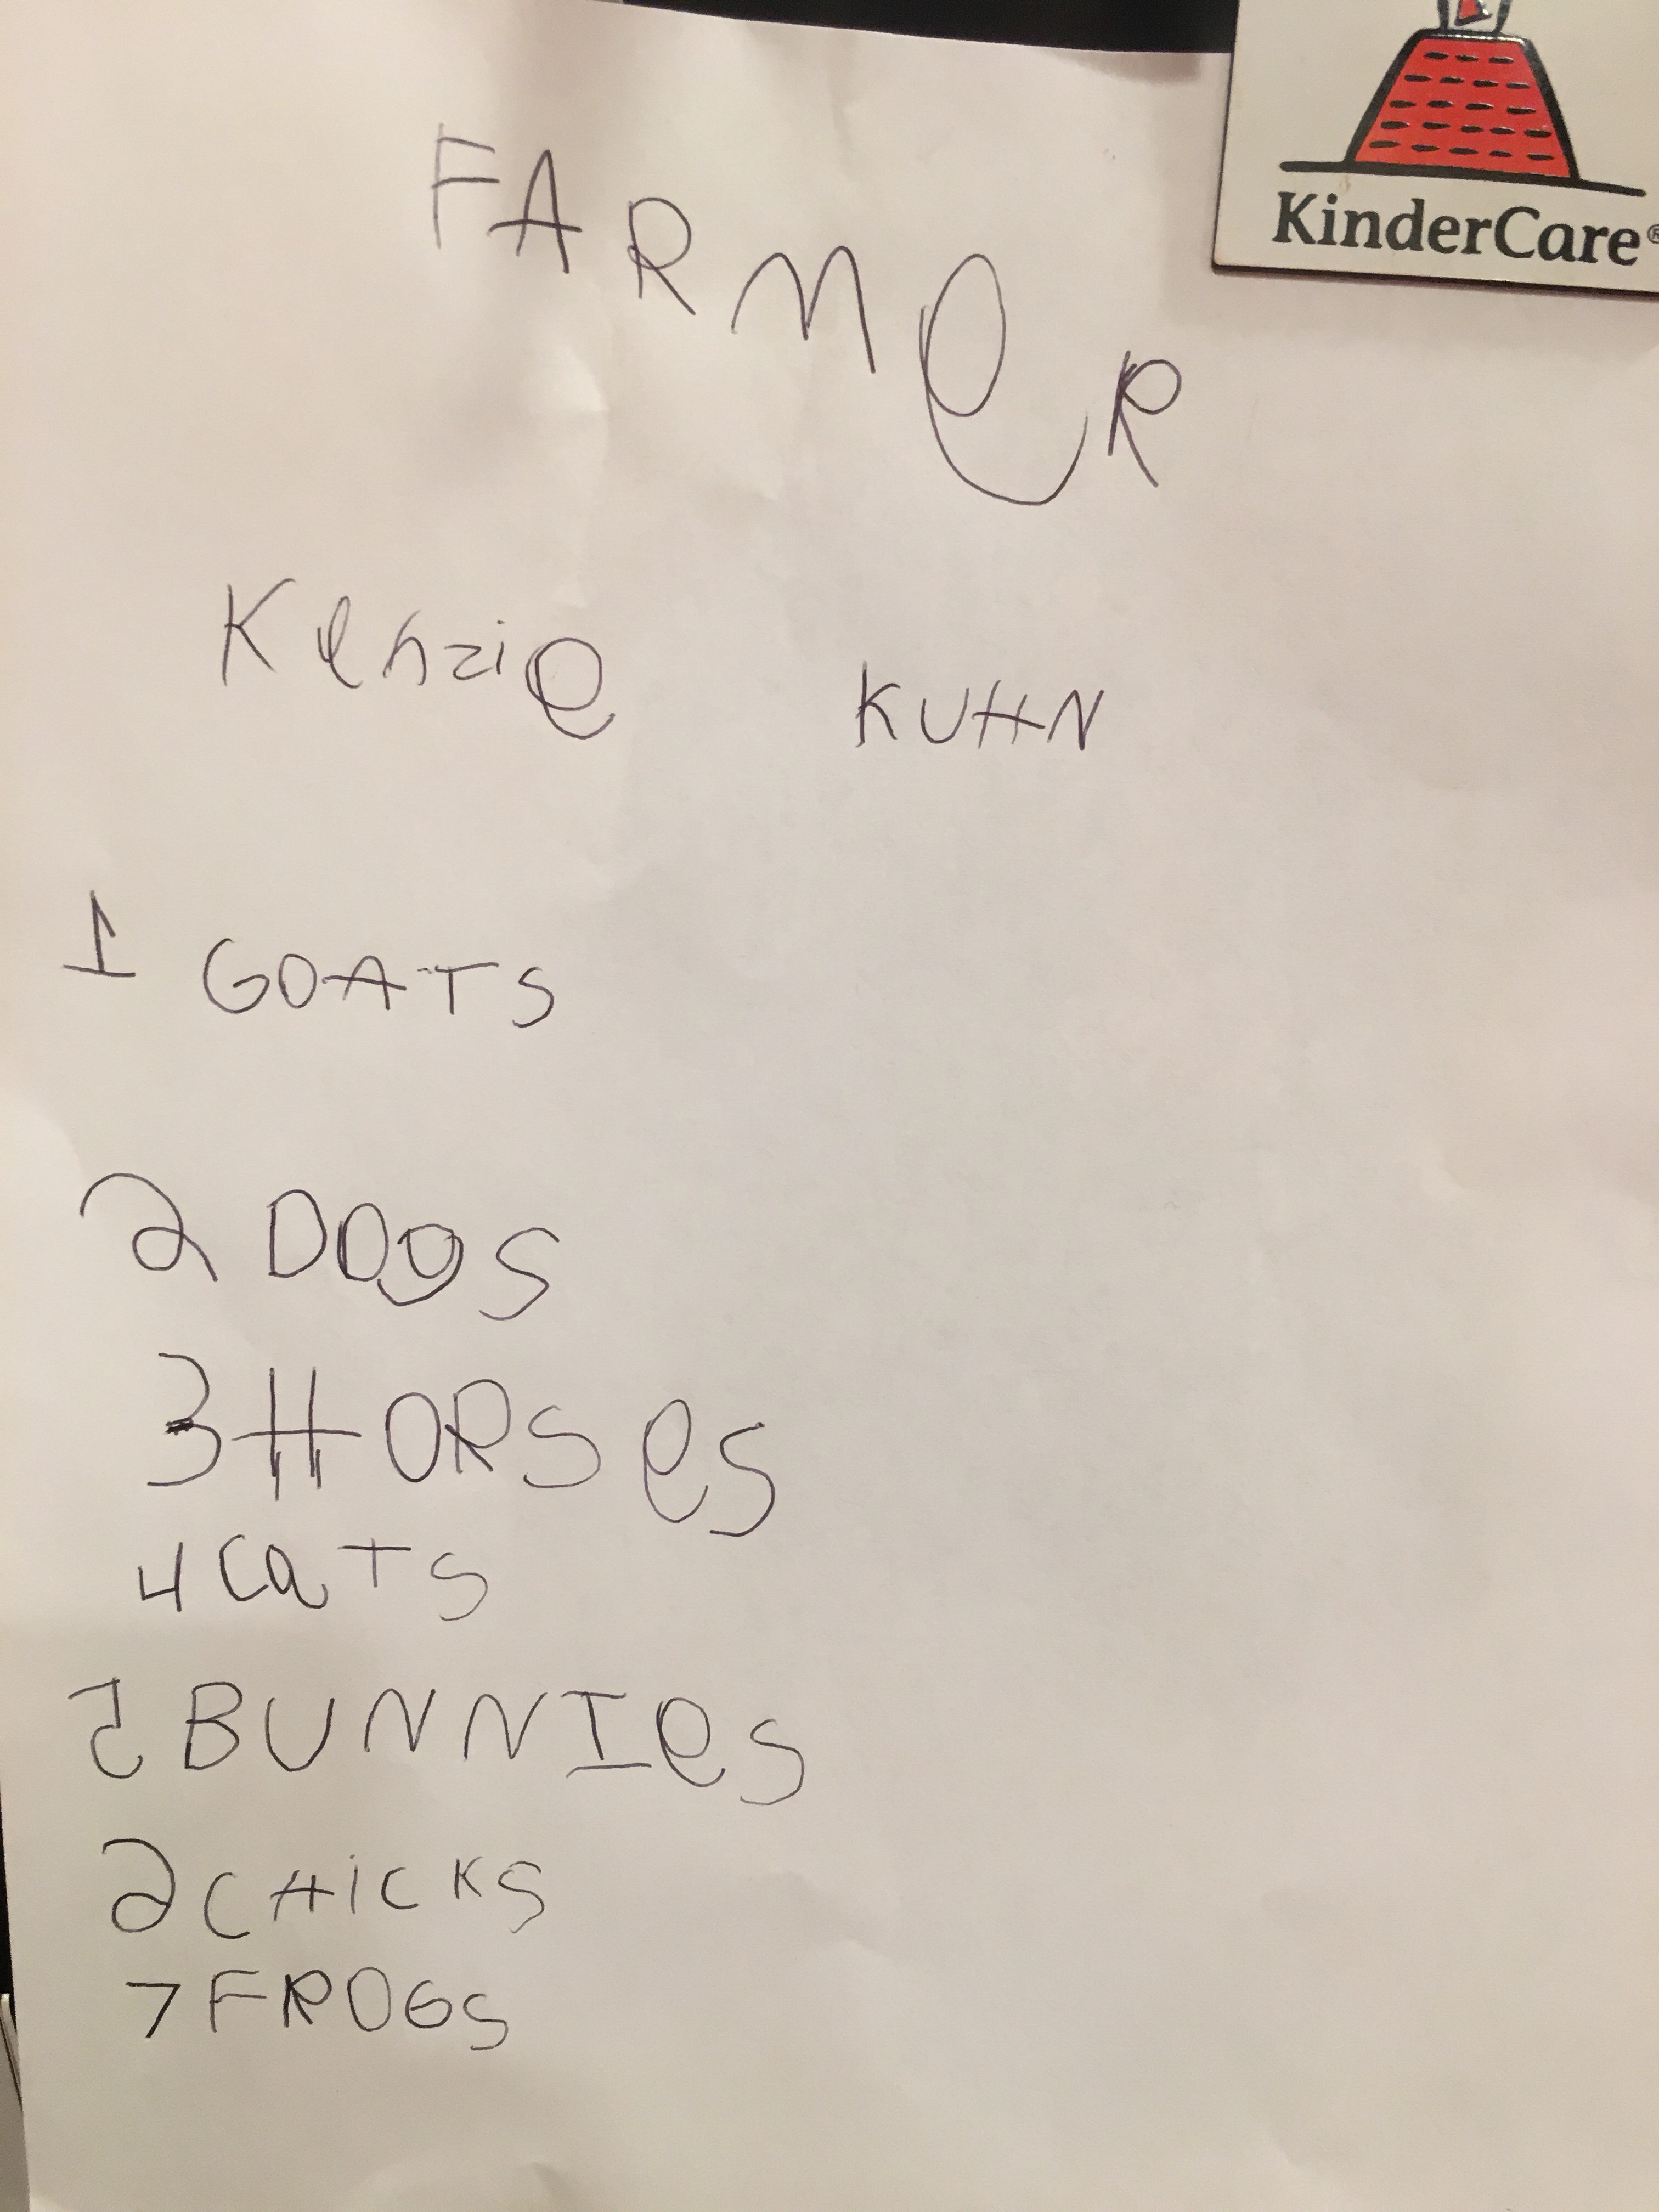 KinderCare®
FARMeR
Kenzie KUHN
1 GOATS
2 DOgS
3 HORSeS
4 CaTS
5 BUNNIeS
6 CHiCKS
7 FROGS